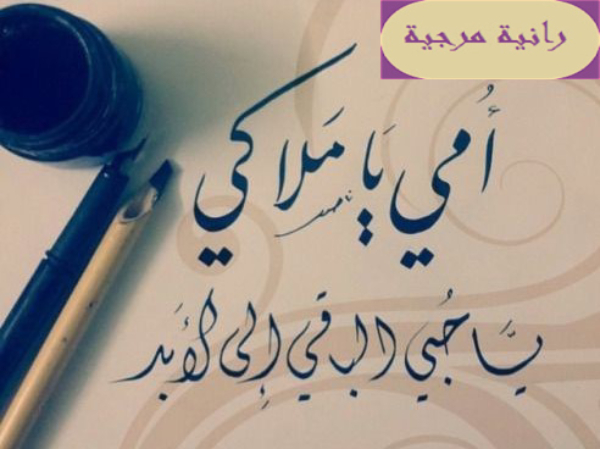 رانية مرجية
أُمي يَا مَلاكي
يَا حُبي الباقي إِلى الأبَد